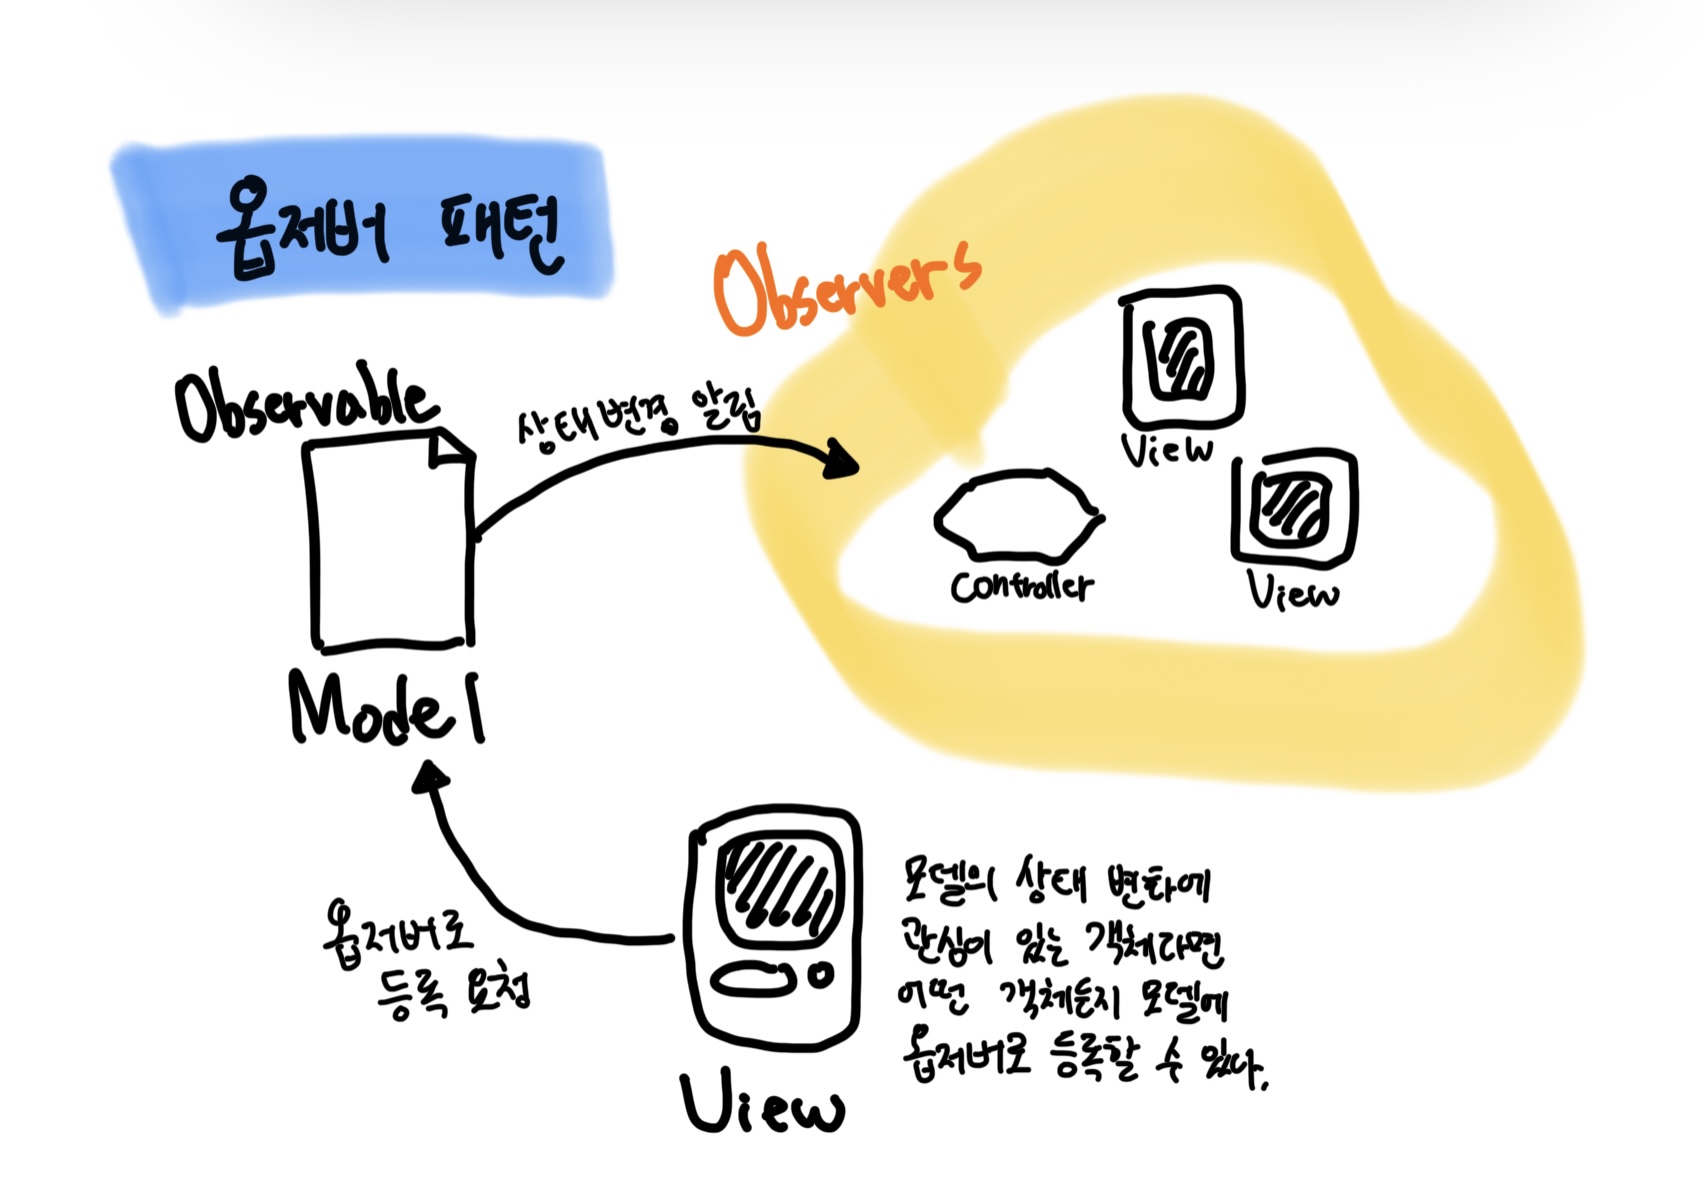 옵저버 패턴
Observers
Observable
상태변경 알림
View
View
Controller
Model
옵저버로
등록 요청
모델의 상태 변화에
관심이 있는 객체라면
어떤 객체든지 모델에
옵저버로 등록할 수 있다.
View